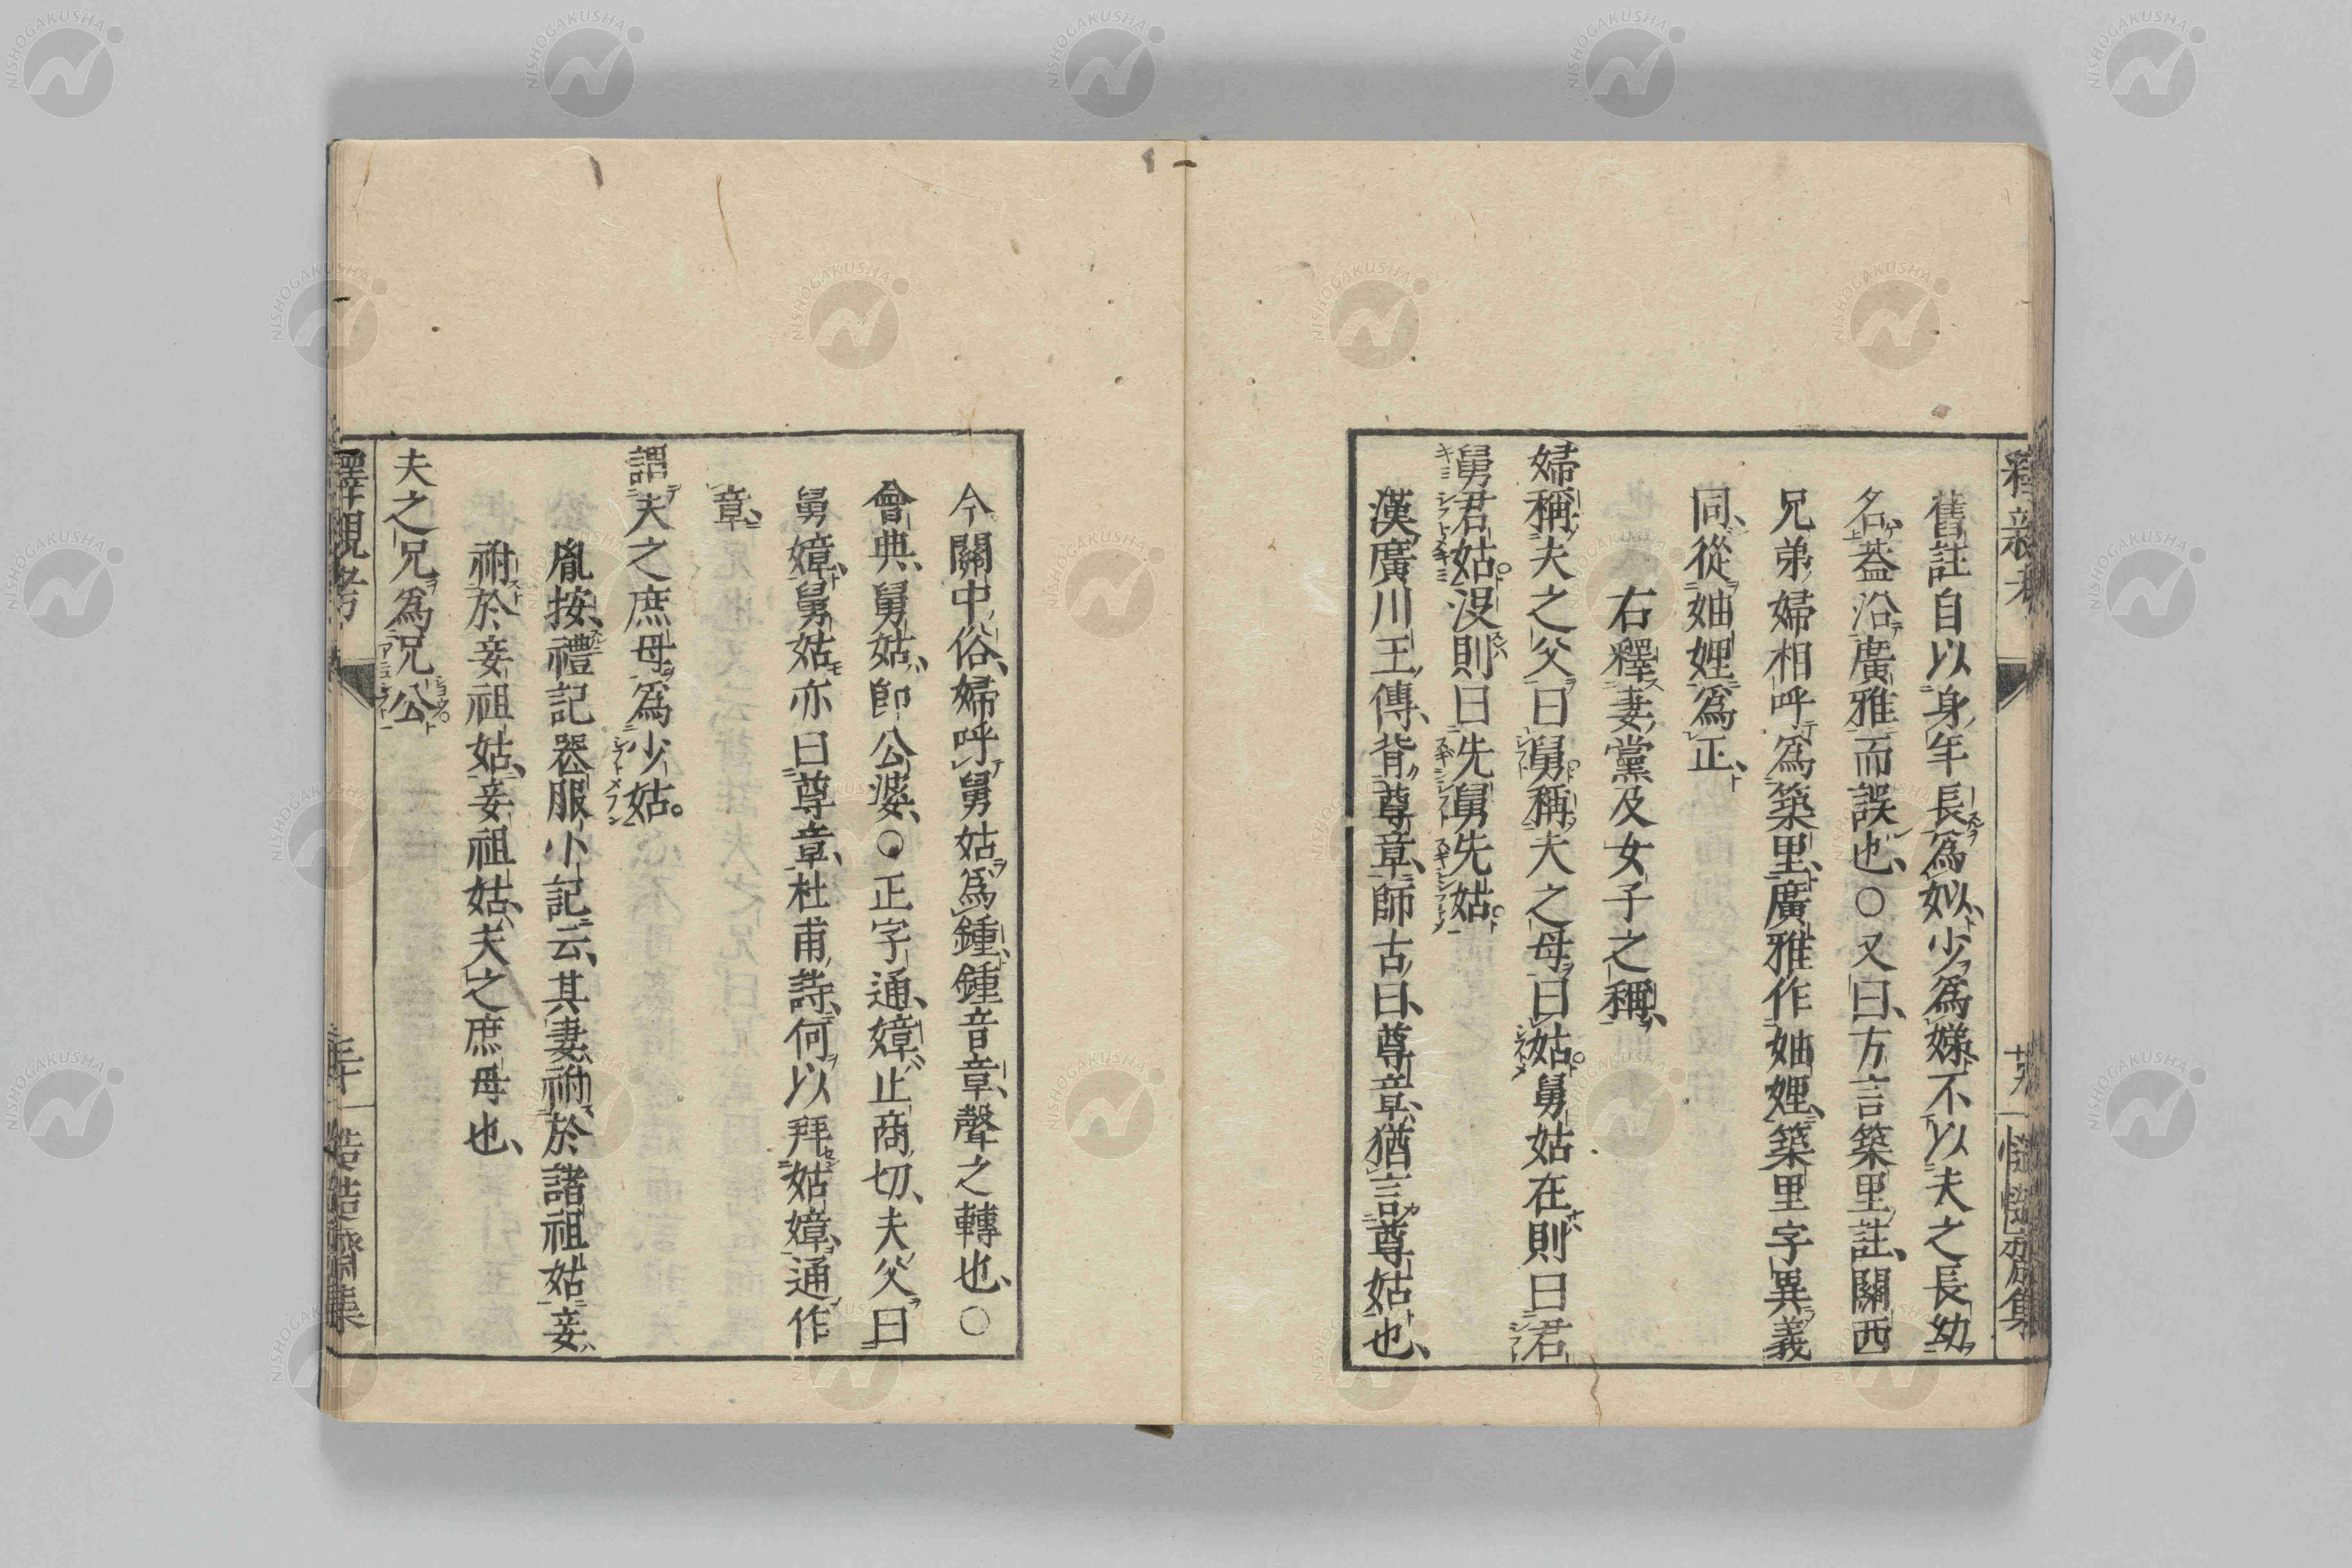 舊註自以身年長爲姒、少爲娣、不以夫之長幼
名、蓋沿廣雅而誤也、○又曰、方言築里註、關西
兄弟婦相呼爲築里、廣雅作妯娌、築里字異義
同、從妯娌爲正、
右釋妻黨及女子之稱、
婦稱夫之父曰舅稱夫之母曰姑舅姑在則曰君
舅君姑。没則曰先舅先姑。
漢廣川王傳、背尊章、師古曰、尊章、猶言尊姑也、
今關中俗、婦呼舅姑爲鍾、鍾音章、聲之轉也、○
會典、舅姑、卽公婆、○正字通、嫜止商切、夫父曰
舅嫜、舅姑亦曰尊章、杜甫詩、何以拜姑嫜、通作
章、
謂夫之庶母爲少姑。
胤按、禮記喪服小記云、其妻祔於諸祖姑妾
祔於妾祖姑、妾祖姑、夫之庶母也、
夫之兄爲兄公
釋親考